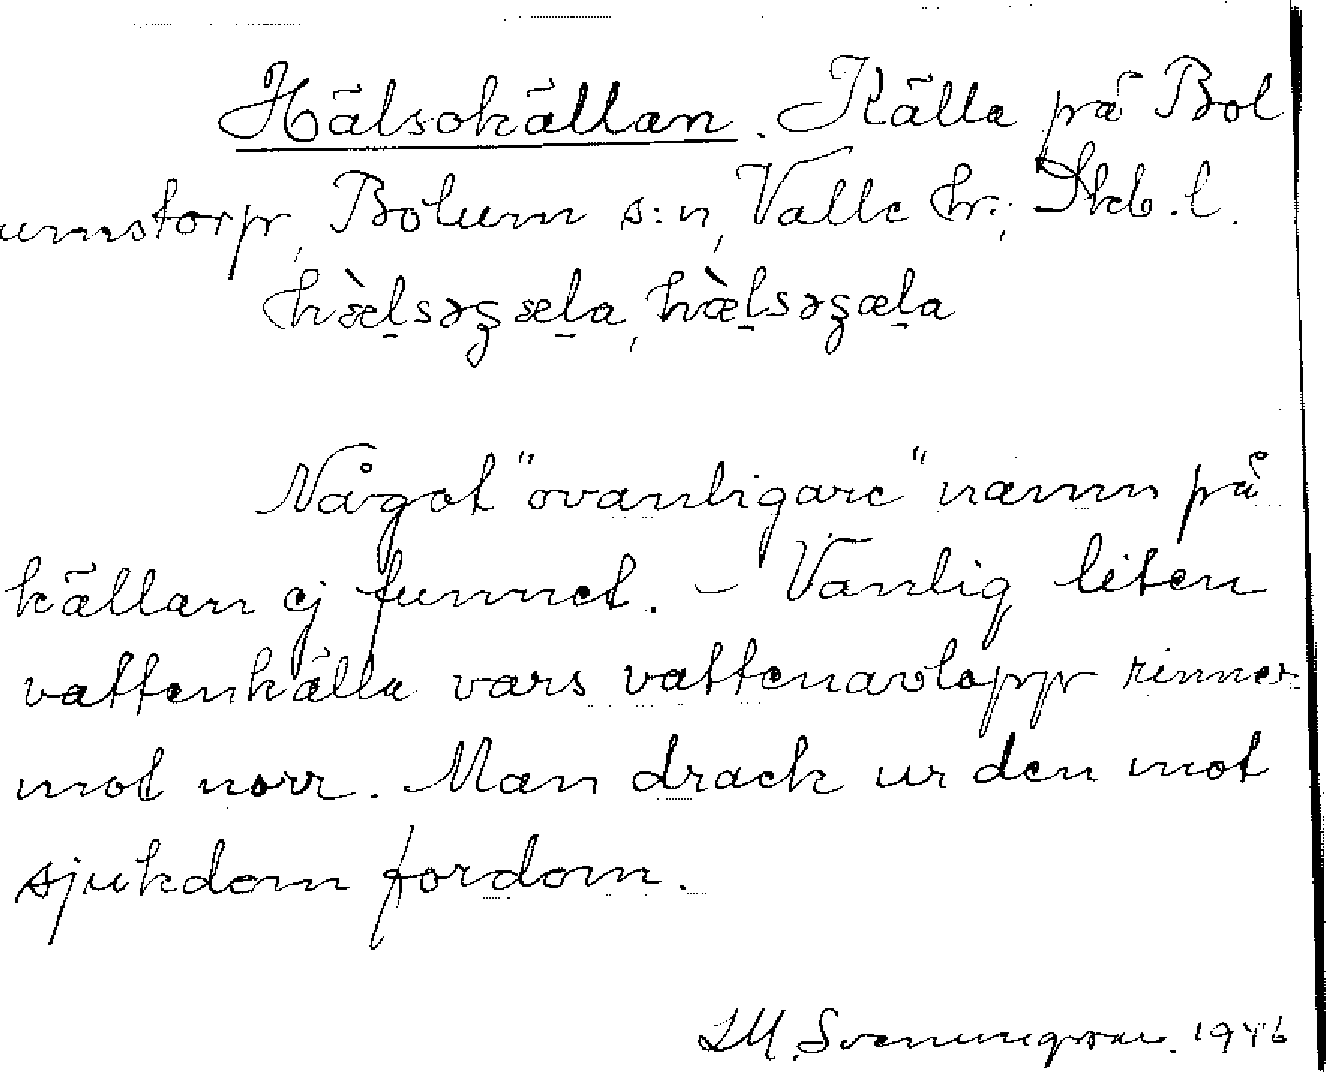 Hälsokällan. Källa på Bol
umstorp, Bolum s:n, Valle hr.; Skb.l.
hæ̀l̠səʒæl̠a, hæ̀l̠səʒæl̠a
Något "ovanligare" namn på
källan ej funnet. - Vanlig liten
vattenkälla vars vattenavlopp rinner
mot norr. Man drack ur den mot
sjukdom fordom.
LM. Svenungsson. 1946